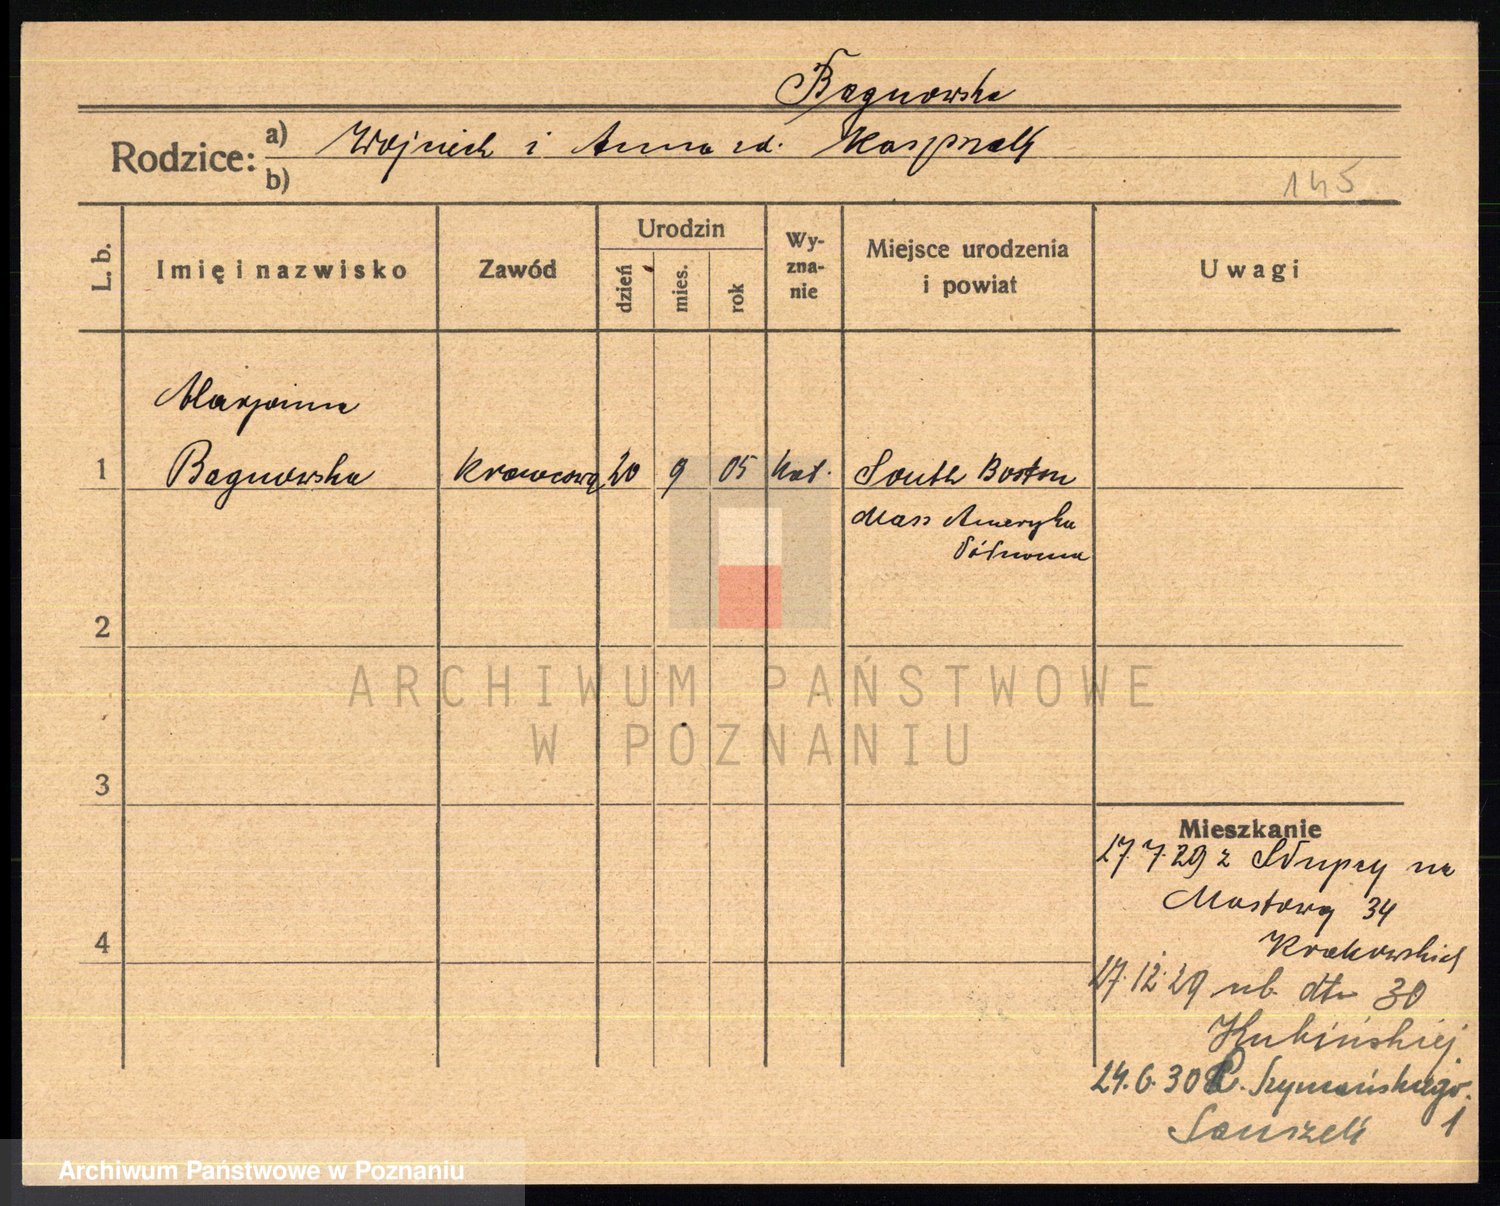 Bagnowska
Rodzice: a) Wojciech i Anna zd. Kasprzak
b)
145
L. b.
Imię i nazwisko
Zawód
Urodzin
dzień
mies.
rok
Wy-
zna-
nie
Miejsce urodzenia
i powiat
Uwagi
Marjanna
1 Bagnowska krawcowa 20 9 05 kat. South Boston
Mass Ameryka
Północna
2
3
4
ARCHIWUM PAŃSTWOWE
W POZNANIU
Mieszkanie
27.7.29 z Słupcy na
Mostowa 34
Krakowskich
27.12.29 ub. dto 30
Kubińskiej
24.6.30 Szymańskiego
1
Archiwum Państwowe w Poznaniu